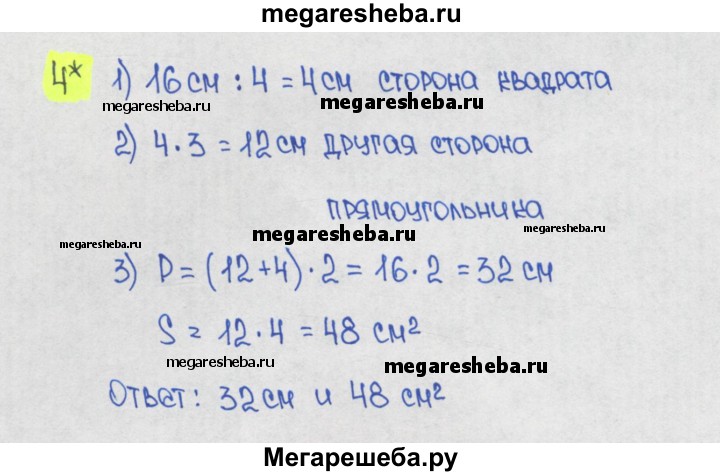 megaresheba.ru
4* 1) 16 см : 4 = 4 см сторона квадрата
megaresheba.ru megaresheba.ru
2) 4 · 3 = 12 см другая сторона
прямоугольника
megaresheba.ru megaresheba.ru
3) P = (12+4) · 2 = 16 · 2 = 32 см
S = 12 · 4 = 48 см²
megaresheba.ru megaresheba.ru
Ответ: 32 см и 48 см²
Мегарешеба.ру